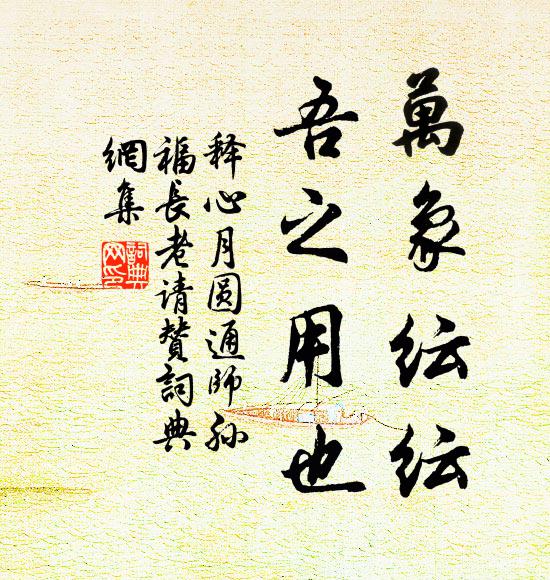 萬象纭纭
吾之用也
释心月圆通師孙
福長老请赞詞典
網集
詞典
网印